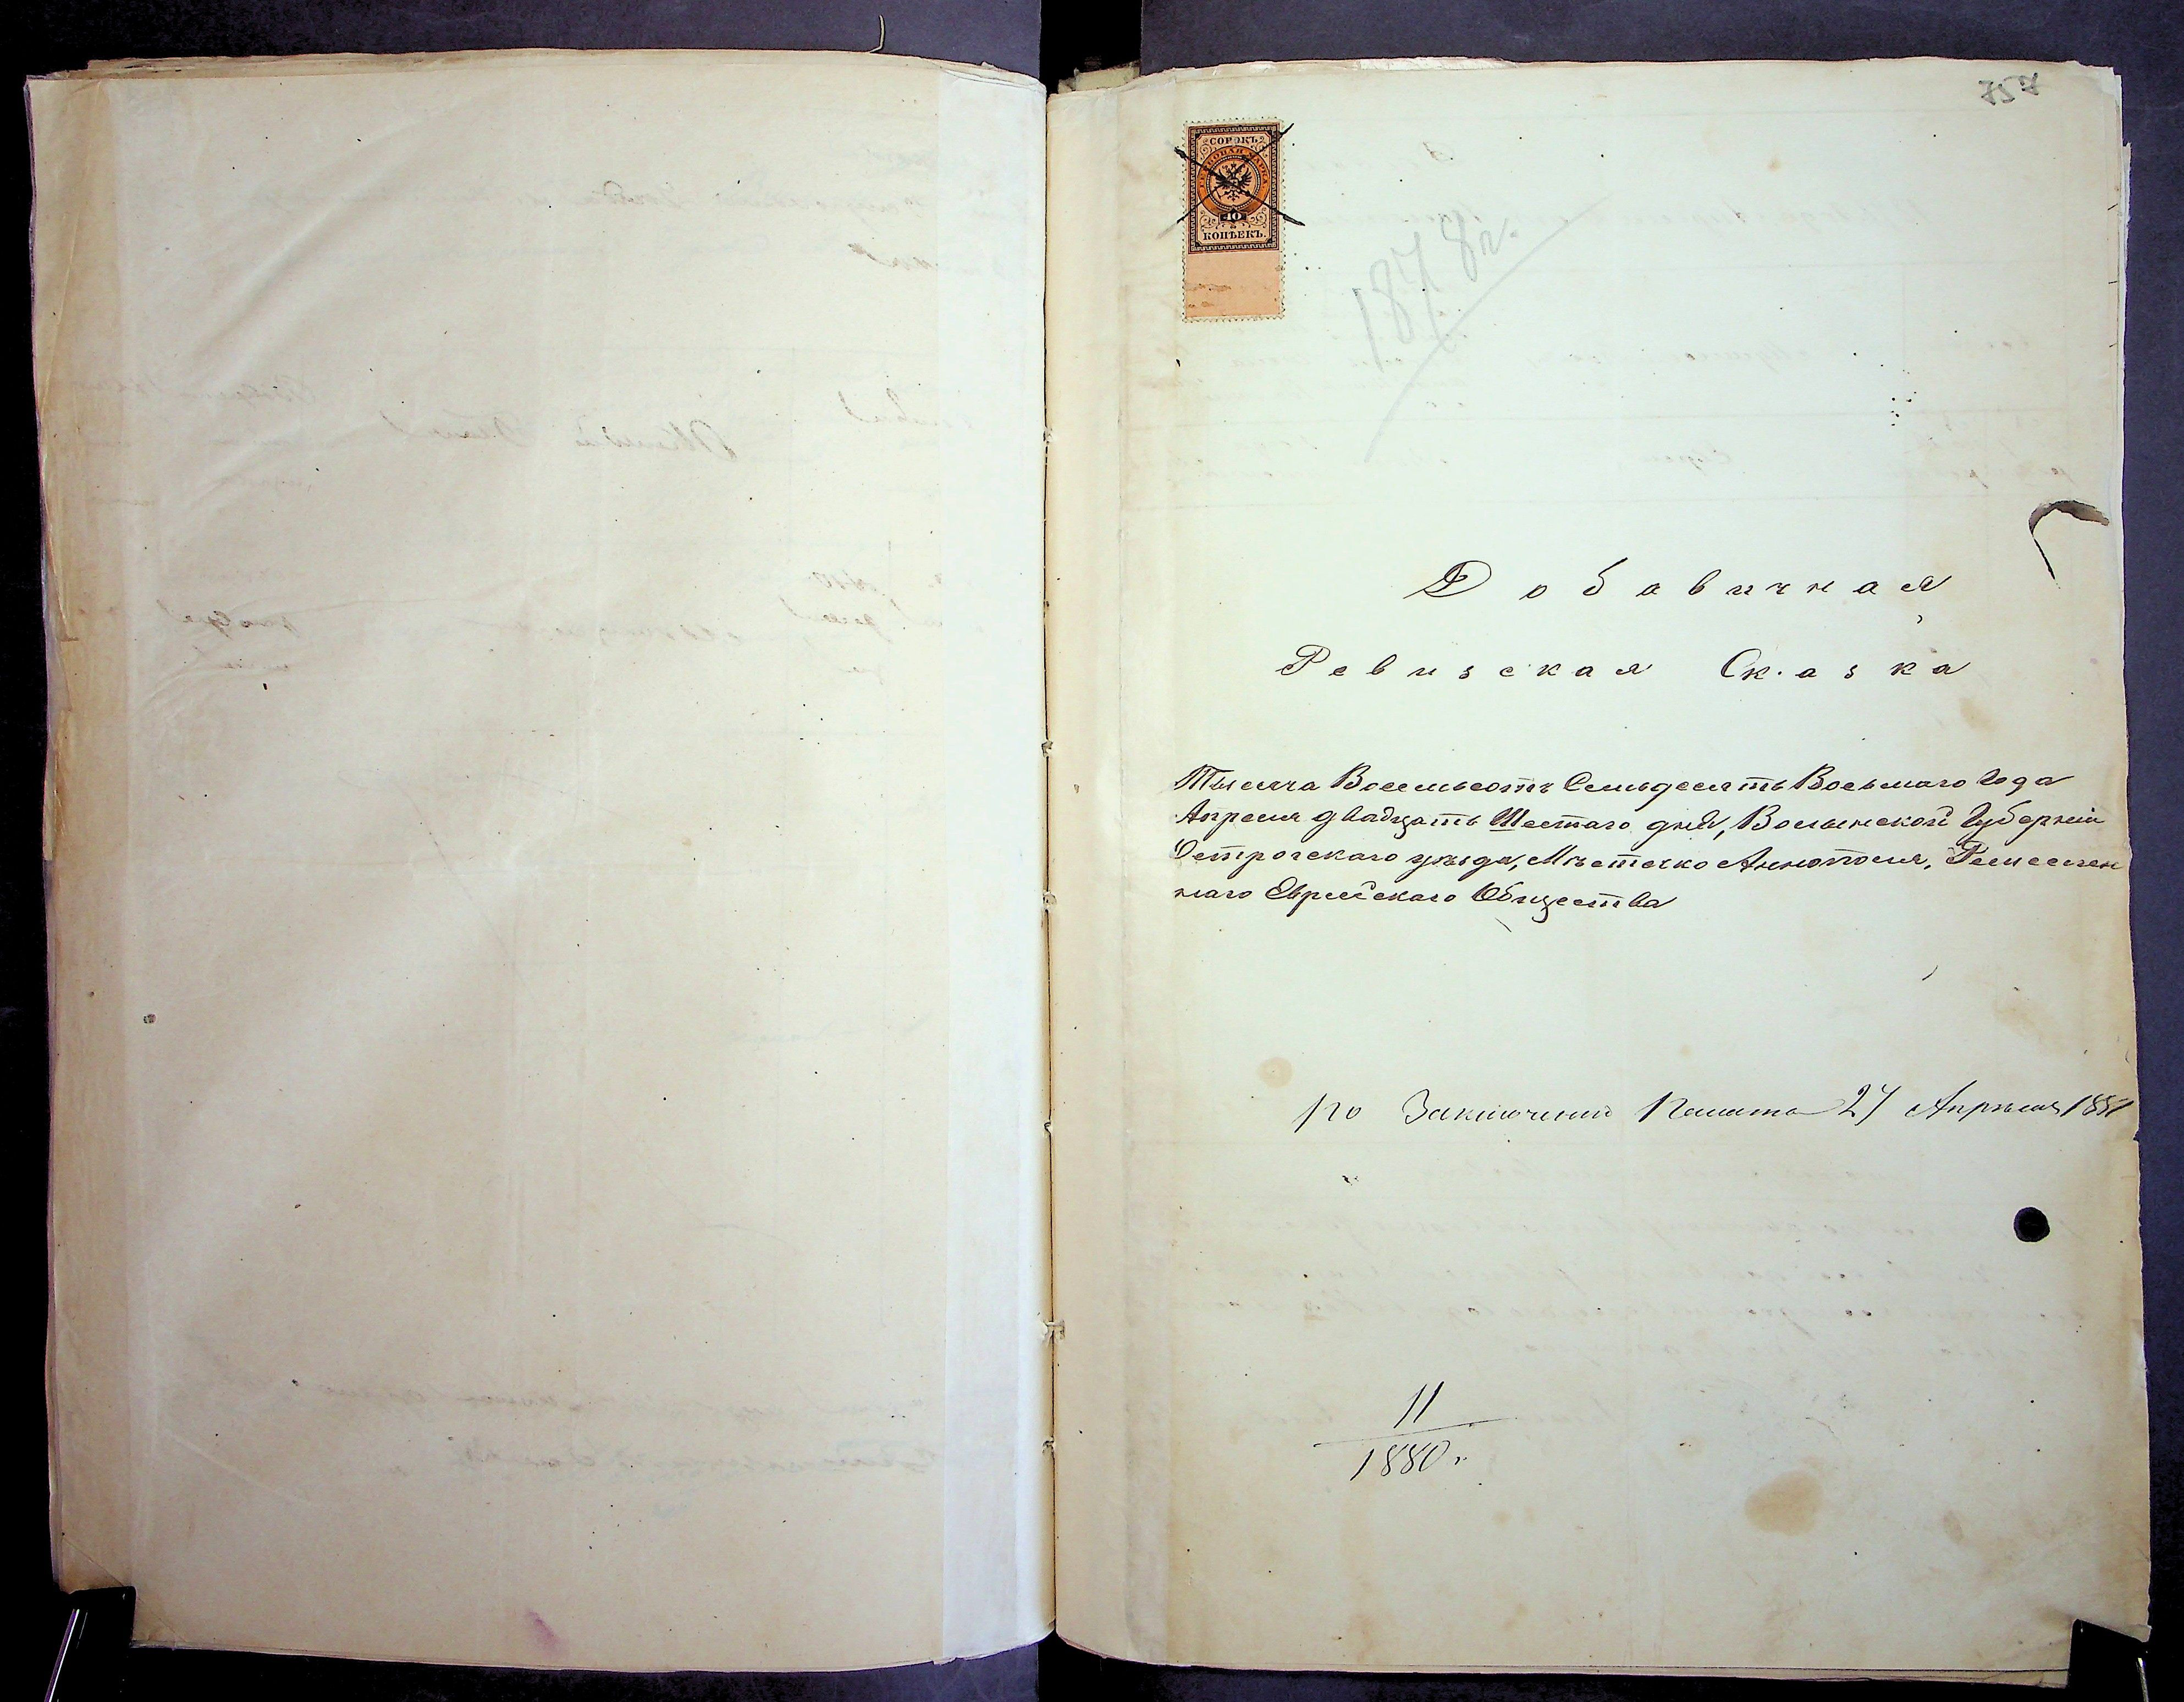 СОРОКЪ
ГЕРБОВАЯ МАРКА
40
КОПѢЕКЪ.
1878 г.
Добавичная
Ревизская Сказка
Тысяча Восемьсотъ Семьдесять Восьмаго Года
Апреля двадцать Шестаго дня, Волынской Губерніи
Острогскаго уѣзда, Мѣстечко Аннополя, Ремеслен
наго Еврейскаго Общества
по Заключенію Палаты 27 Апрѣля
11
1880 г.